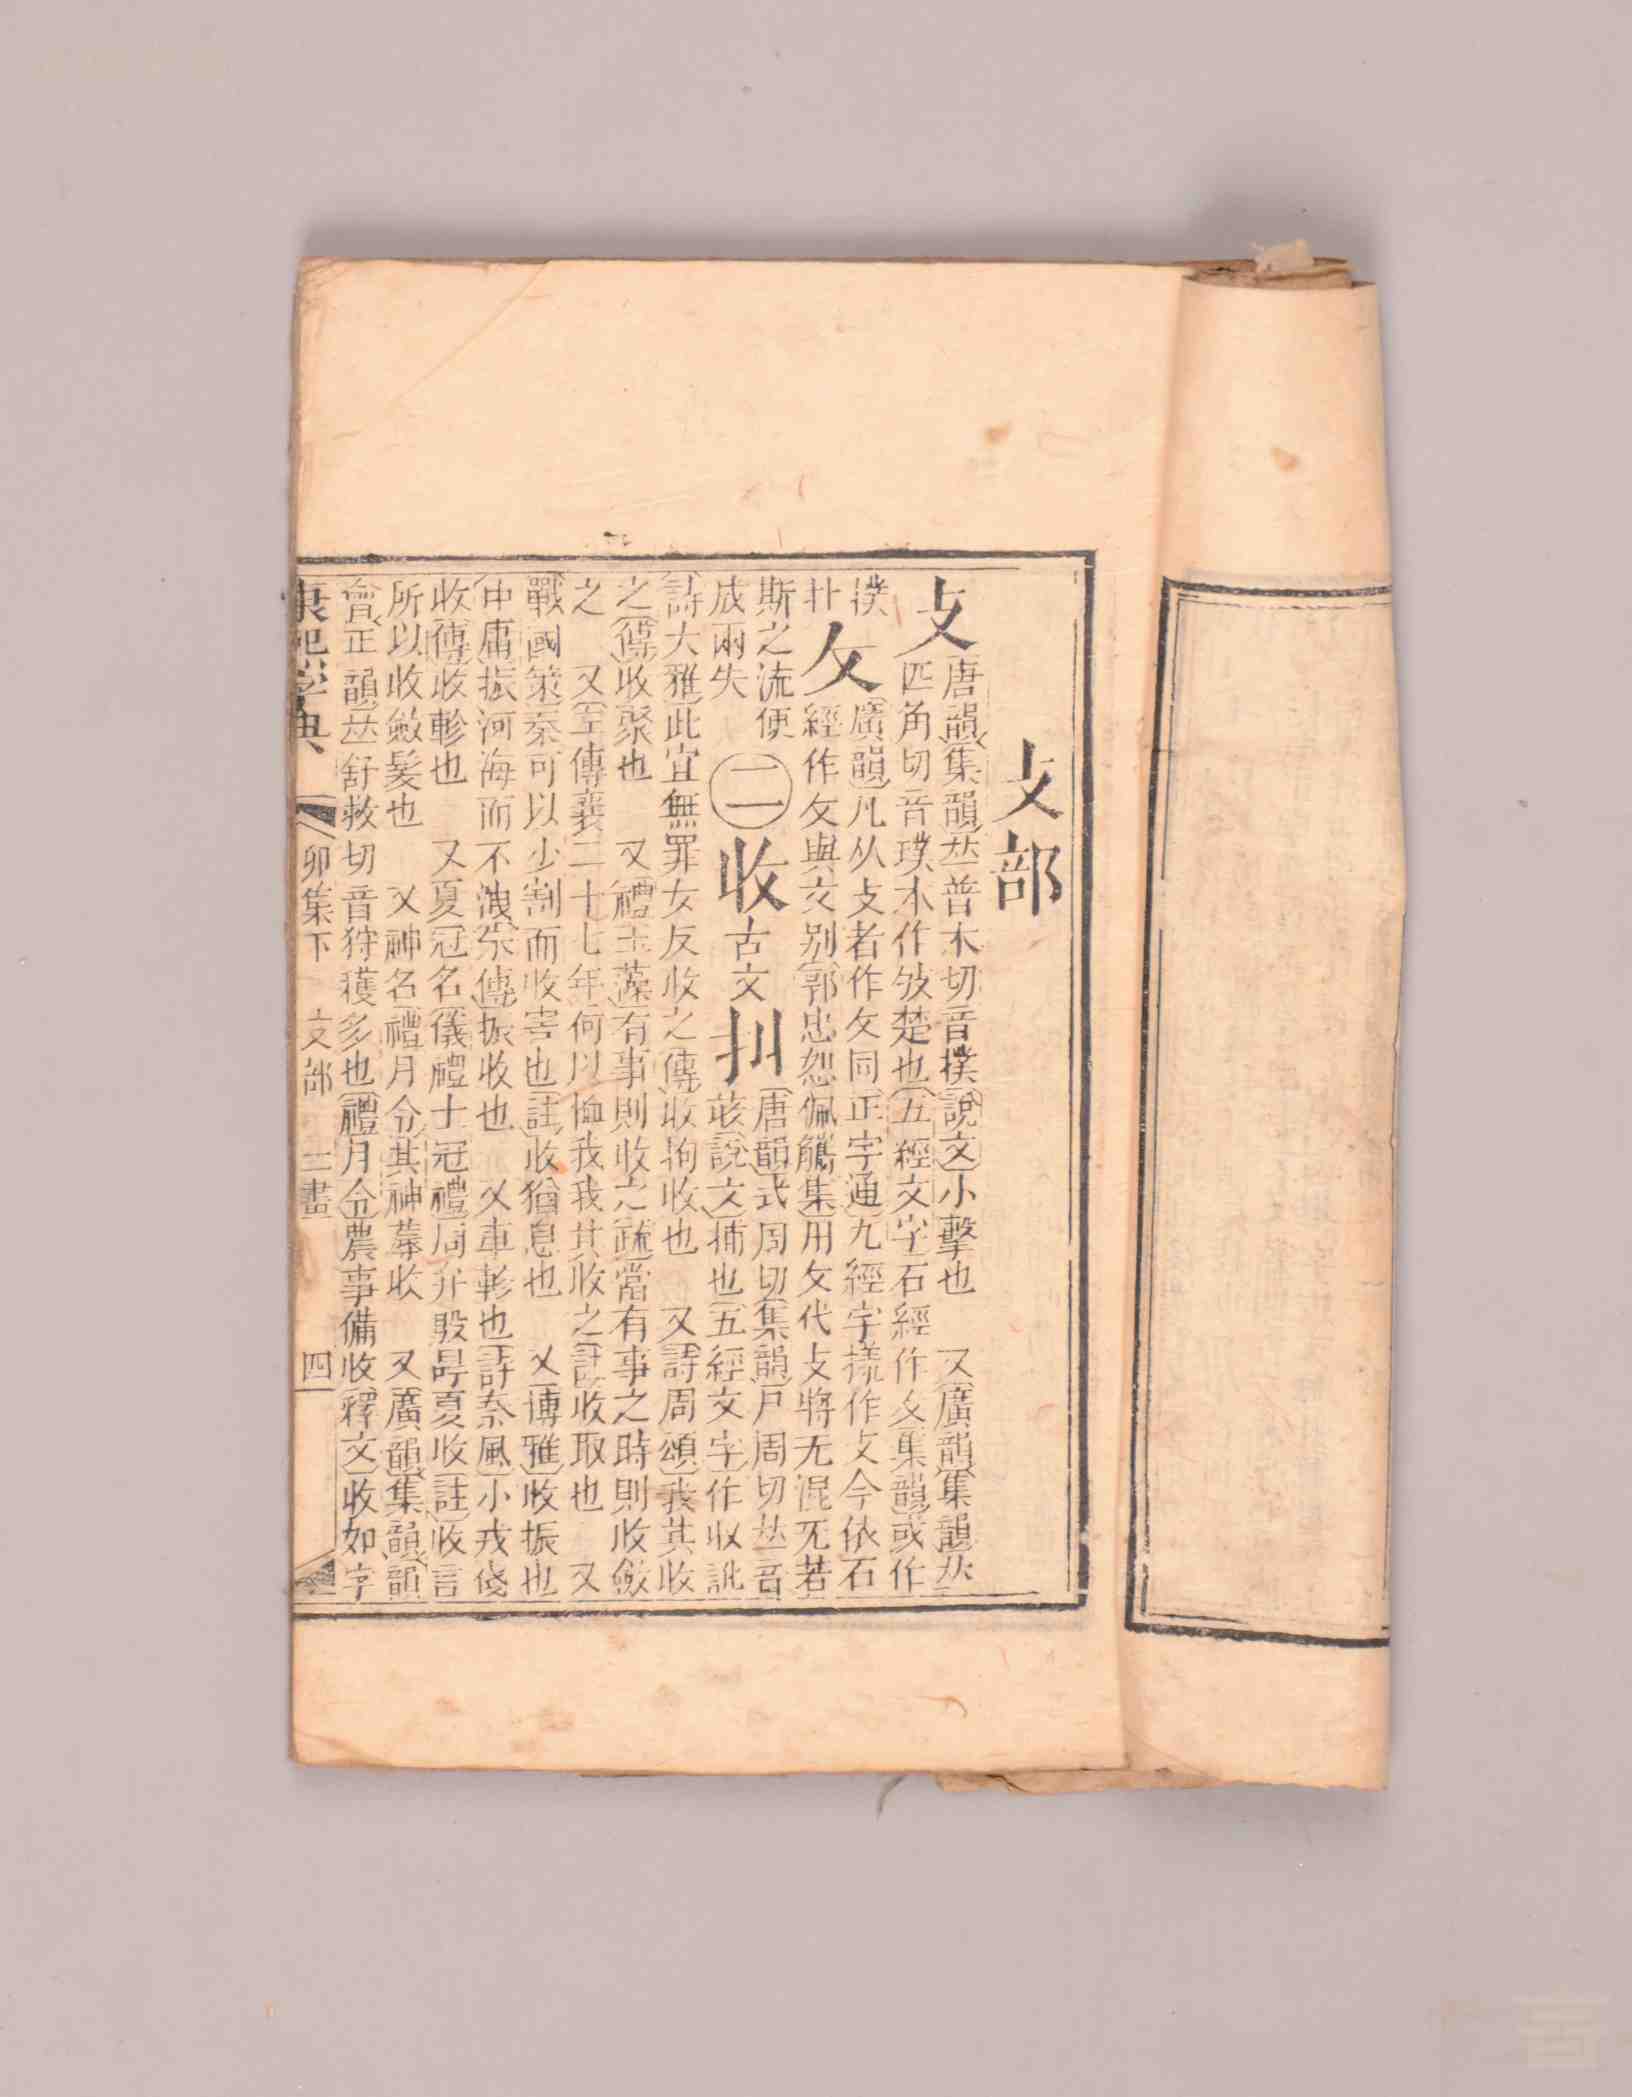 攴部
攴 唐韻集韻𠀤普木切音撲說文小擊也 又廣韻集韻𠀤
匹角切音璞木作攱楚也五經文字石經作攵集韻或作
撲 廣韻凡从攴者作攵同正字通九經字樣作攵今依石
扑 攵 經作攵與文别郭忠恕佩觿集用攵代攴將无混旡若
斯之流便
成兩失 二 收 古文 𠬧 唐韻式周切集韻尸周切𠀤音
𢼒說文捕也五經文字作収訛
詩大雅此宜無罪女反收之傳收拘收也 又詩周頌我其收
之傳收聚也 又禮玉藻有事則收之疏當有事之時則收斂
之 又左傳襄二十七年何以恤我我其收之註收取也 又
戰國策秦可以少割而收害也註收猶息也 又博雅收振也
中庸振河海而不洩朱傳振收也 又車軫也詩秦風小戎俴
收傳收軫也 又夏冠名儀禮士冠禮周弁殷冔夏收註收言
所以收斂髮也 又神名禮月令其神蓐收 又廣韻集韻韻
會正韻𠀤舒救切音狩穫多也禮月令農事備收釋文收如字
康熙字典 卯集下 攴部 二畫 四